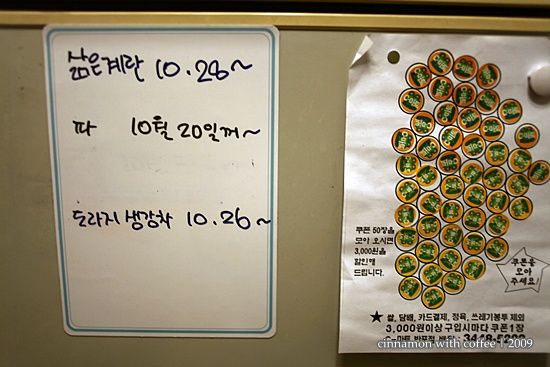 삶은계란 10.28~
파 10월 20일께~
도라지 생강차 10.26~
쿠폰 50장을
모아 오시면
3,000원을
할인해
드립니다.
쿠폰을
모아
주세요!
★ 쌀, 담배, 카드결제, 정육, 쓰레기봉투 제외
3,000원이상 구입시마다 쿠폰1장
cinnamon with coffee | 2009